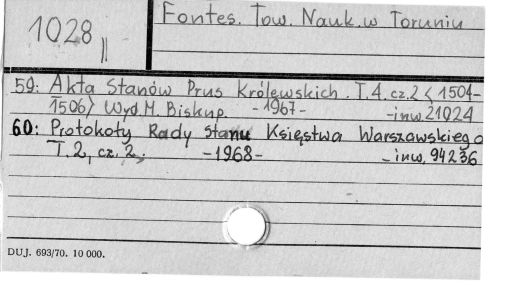 1028 ||
Fontes. Tow. Nauk. w Toruniu
59: Akta Stanów Prus Królewskich. T.4. cz. 2 < 1504-
1506> Wyd. M. Biskup. - 1967 - - inw. 21024
60: Protokoły Rady Stanu Księstwa Warszawskiego
T. 2, cz. 2, - 1968 - - inw. 94236
DUJ. 693/70. 10 000.